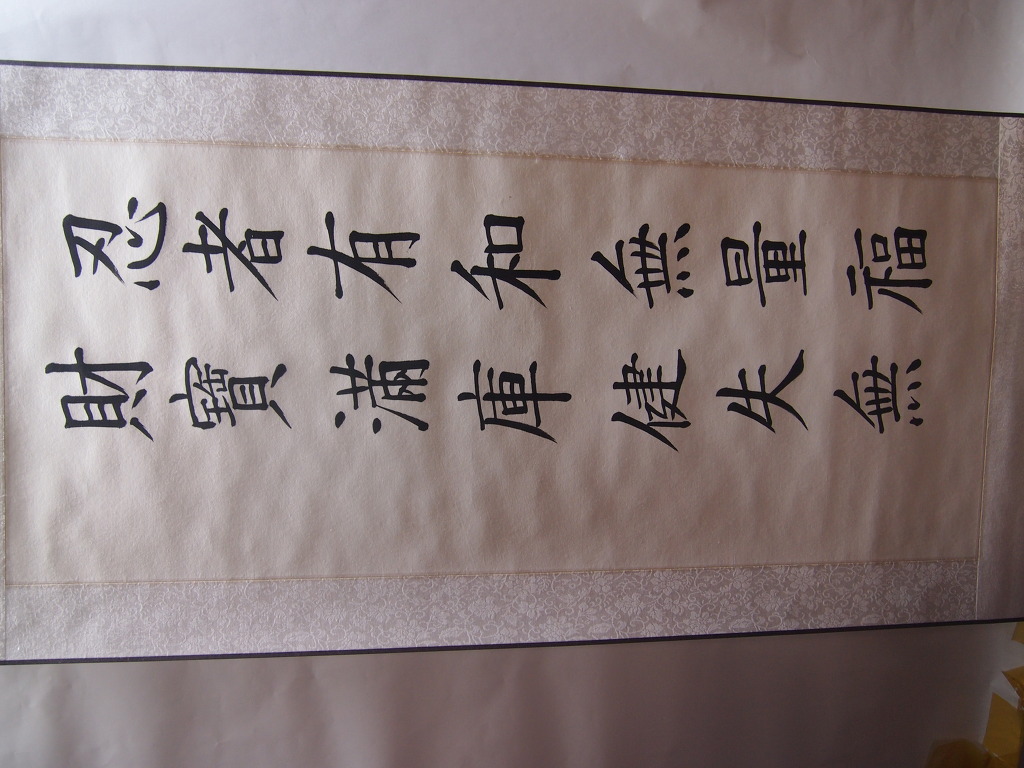 忍者有和無量福
財寶滿庫健失無